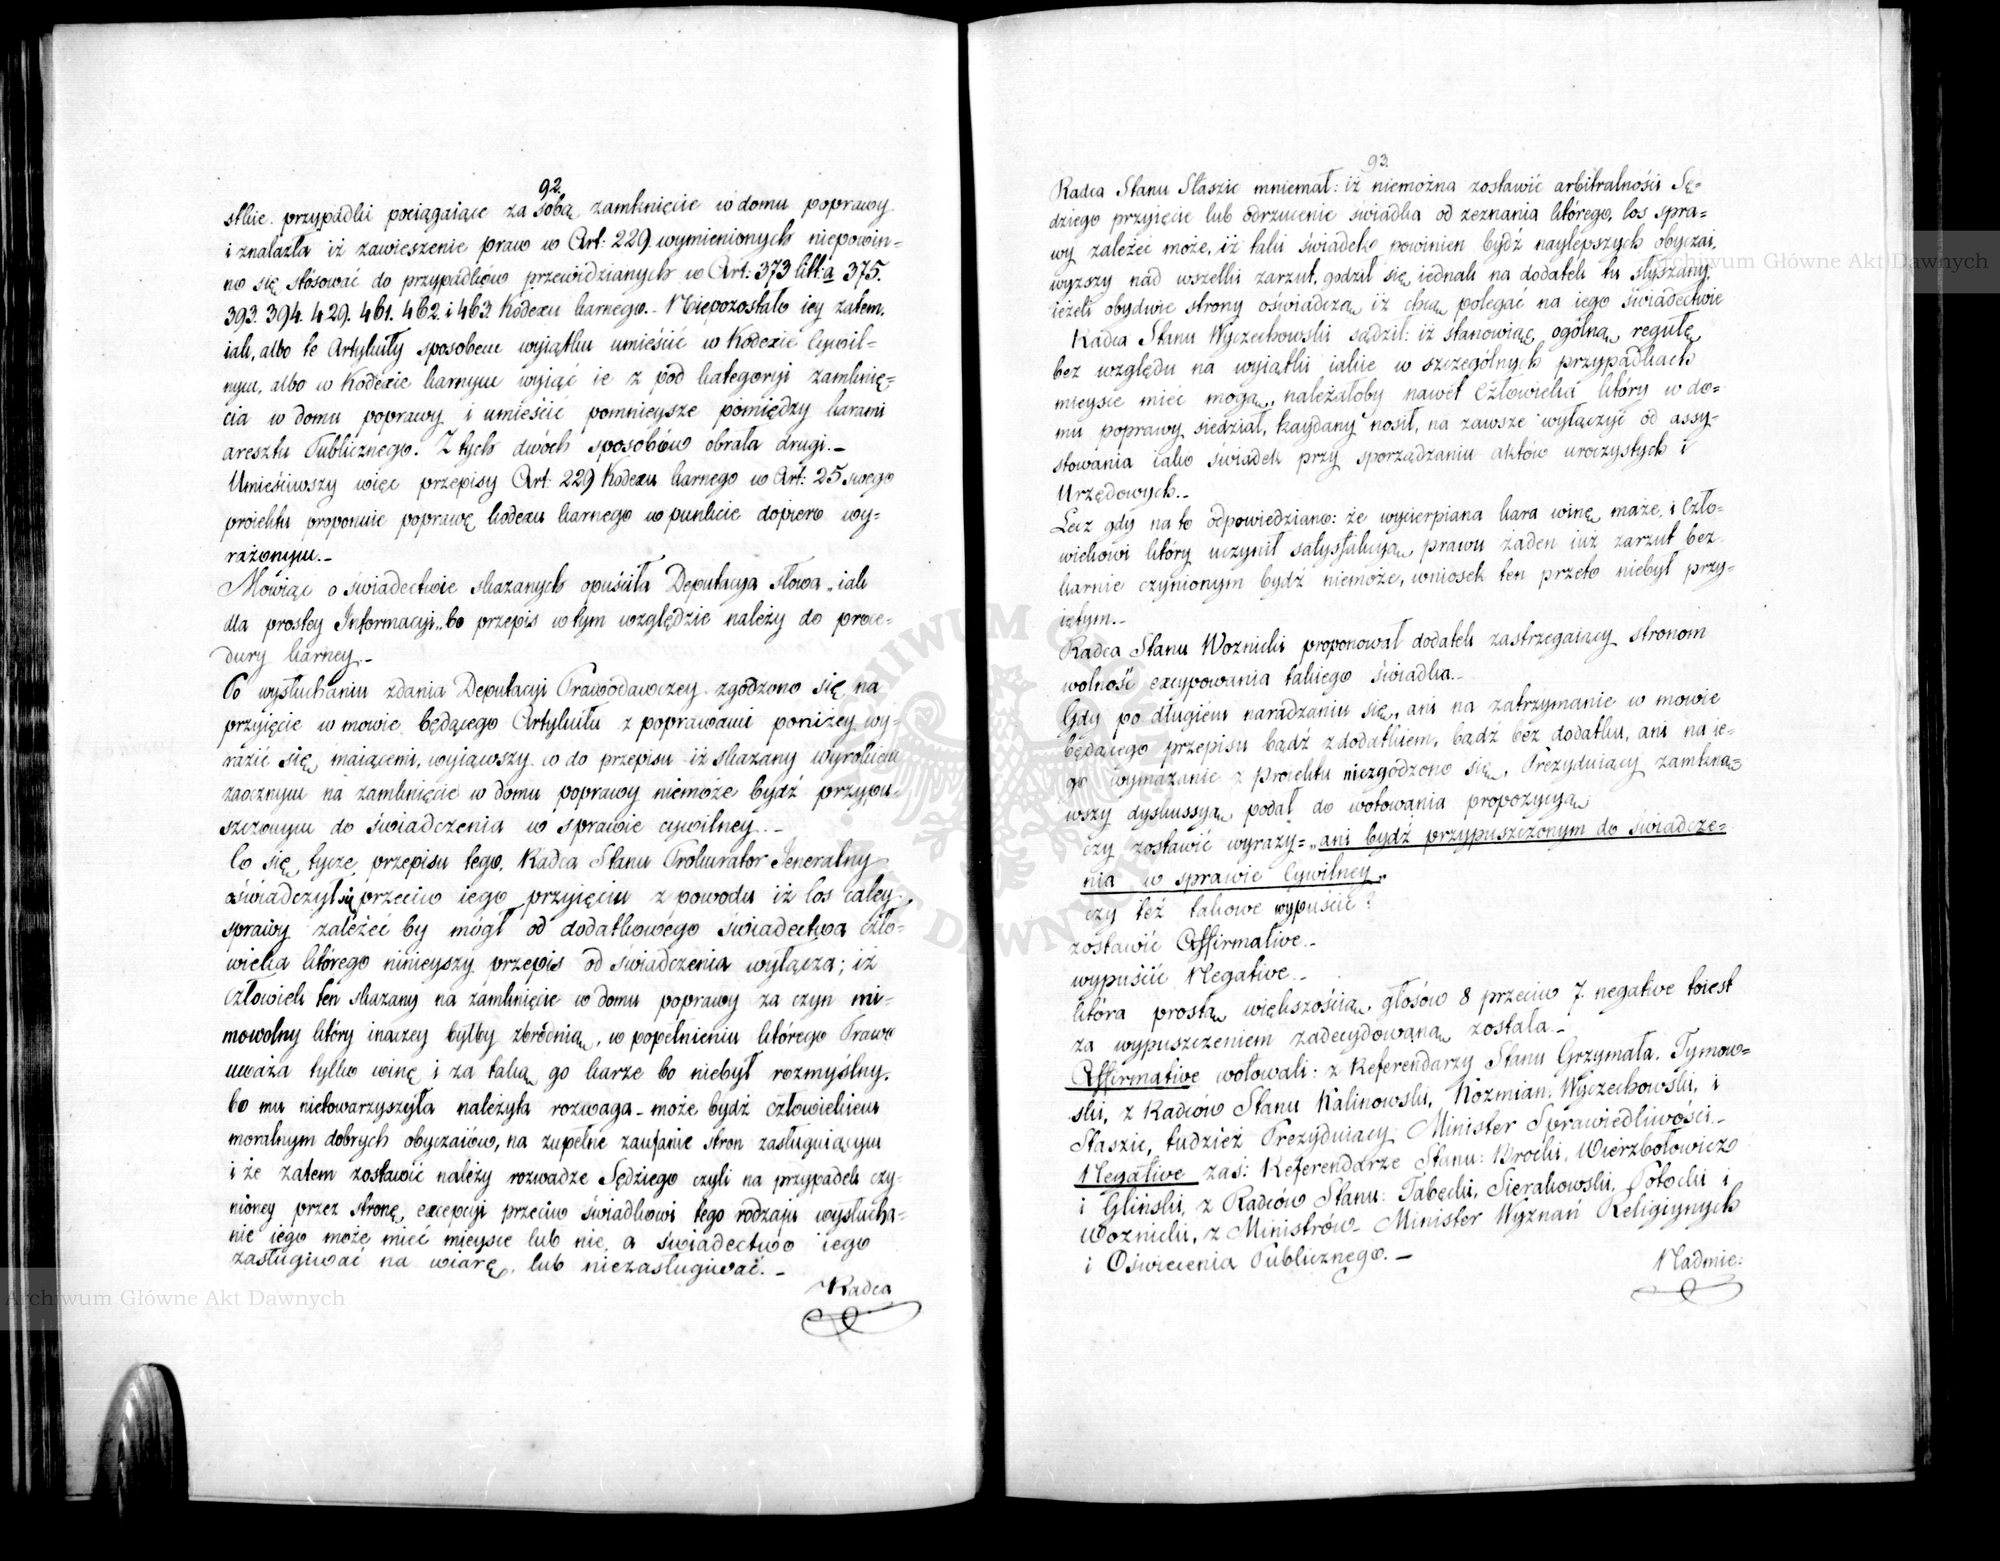 92.
stkie przypadki pociągaiące za sobą zamknięcie w domu poprawy
i znalazła iż zawieszenie praw w Art: 229 wymienionych niepowin-
no się stósować do przypadków przewidzianych w Art: 373 litt: a 375.
393. 394. 429. 461. 462. i 463 Kodexu karnego. - Niepozostało iey zatem,
iak, albo te Artykuły sposobem wyiątku umieścić w Kodexie Cywil-
nym, albo w Kodexie karnym wyiąć ie z pod kategoryi zamknię=
cia w domu poprawy i umieścić pomnieysze pomiędzy karami
aresztu Publicznego. Z tych dwóch sposobów obrała drugi. -
Umieściwszy więc przepisy Art: 229 Kodexu karnego w Art: 25 swego
proiektu proponuie poprawę kodexu karnego w punkcie dopiero wy=
rażonym. -
Mówiąc o świadectwie skazanych opuściła Deputacya słowa „iak
dla prostey Informacyi„ bo przepis w tym względzie należy do proce=
dury karney. -
Po wysłuchaniu zdania Deputacyi Prawodawczey zgodzono się na
przyięcie w mowie będącego Artykułu z poprawami poniżey wy-
razić się maiącemi, wyiąwszy co do przepisu iż skazany wyrokiem
zaocznym na zamknięcie w domu poprawy niemoże bydź przypu-
szczonym do świadczenia w sprawie cywilney. -
Co się tycze przepisu tego, Radca Stanu Prokurator Jeneralny
oświadczył się przeciw iego przyięciu z powodu iż los całey
sprawy zależeć by mógł od dodatkowego świadectwa czło-
wieka którego ninieyszy przepis od świadczenia wyłącza; iż
człowiek ten skazany na zamknięcie w domu poprawy za czyn mi-
mowolny który inaczey byłby zbrodnią, w popełnieniu którego Prawo
uważa tylko winę i za taką go karze bo niebył rozmyślny,
bo mu nietowarzyszyła należyta rozwaga - może bydź człowiekiem
moralnym dobrych obyczaiów, na zupełne zaufanie stron zasługuiącym
i że zatem zostawić należy rozwadze Sędziego czyli na przypadek czy-
nioney przez stronę excepcyi przeciw świadkowi tego rodzaju wysłucha=
nie iego może mieć mieysce lub nie, a świadectwo iego
zasługiwać na wiarę, lub niezasługiwać. -
Radca
93.
Radca Stanu Staszic mniemał: iż niemożna zostawić arbitralności Sę-
dziego przyięcie lub odrzucenie świadka od zeznania którego, los spra=
wy zależeć może, iż taki świadek powinien bydź naylepszych obyczai,
wyzszy nad wszelki zarzut, godził się iednak na dodatek tu słyszany,
ieżeli obydwie strony oświadczą iż chcą polegać na iego świadectwie
Radca Stanu Wyczechowski sądził: iż stanowiąc ogólną regułę
bez względu na wyiątki iakie w szczególnych przypadkach
mieysce mieć mogą, należałoby nawet Człowieka który w do=
mu poprawy siedział, kaydany nosił, na zawsze wyłączyć od assy-
stowania iako świadek przy sporządzaniu aktów uroczystych i
Urzędowych. -
Lecz gdy na to odpowiedziano: że wycierpiana kara winę maże, i Czło-
wiekowi który uczynił satysfakcyą prawu żaden iuż zarzut bez
karnie czynionym bydź niemoże, wniosek ten przeto niebył przy-
iętym. -
Radca Stanu Woznicki proponował dodatek zastrzegaiący stronom
wolność excypowania takiego świadka. -
Gdy po długiem naradzaniu się, ani na zatrzymanie w mowie
będącego przepisu bądź z dodatkiem, bądź bez dodatku, ani na ie-
go wymazanie z proiektu niezgodzono się, Prezyduiący zamkną=
wszy dyskussyą, podał do wotowania propozycyą
czy zostawić wyrazy = „ani bydź przypuszczonym do świadcze=
nia w sprawie Cywilney„
czy też takowe wypuścić?
zostawić Affirmative. -
wypuścić Negative. -
która prostą większością głosów 8 przeciw 7 negative toiest
za wypuszczeniem zadecydowaną została. -
Affirmative wotowali: z Referendarzy Stanu Grzymała, Tymow=
ski, z Radców Stanu Kalinowski, Kozmian, Wyczechowski, i
Staszic, tudzież Prezyduiący Minister Sprawiedliwości. -
Negative zaś: Referendarze Stanu: Krocki, Wierzbołowicz
i Gliński, z Radców Stanu: Tabęcki, Sierakowski, Potocki i
Woznicki, z Ministrów - Minister Wyznań Religiynych
i Oświecenia Publicznego. -
Nadmie:
Archiwum Główne Akt Dawnych
Archiwum Główne Akt Dawnych
ARCHIWUM GŁÓWNE AKT DAWNYCH